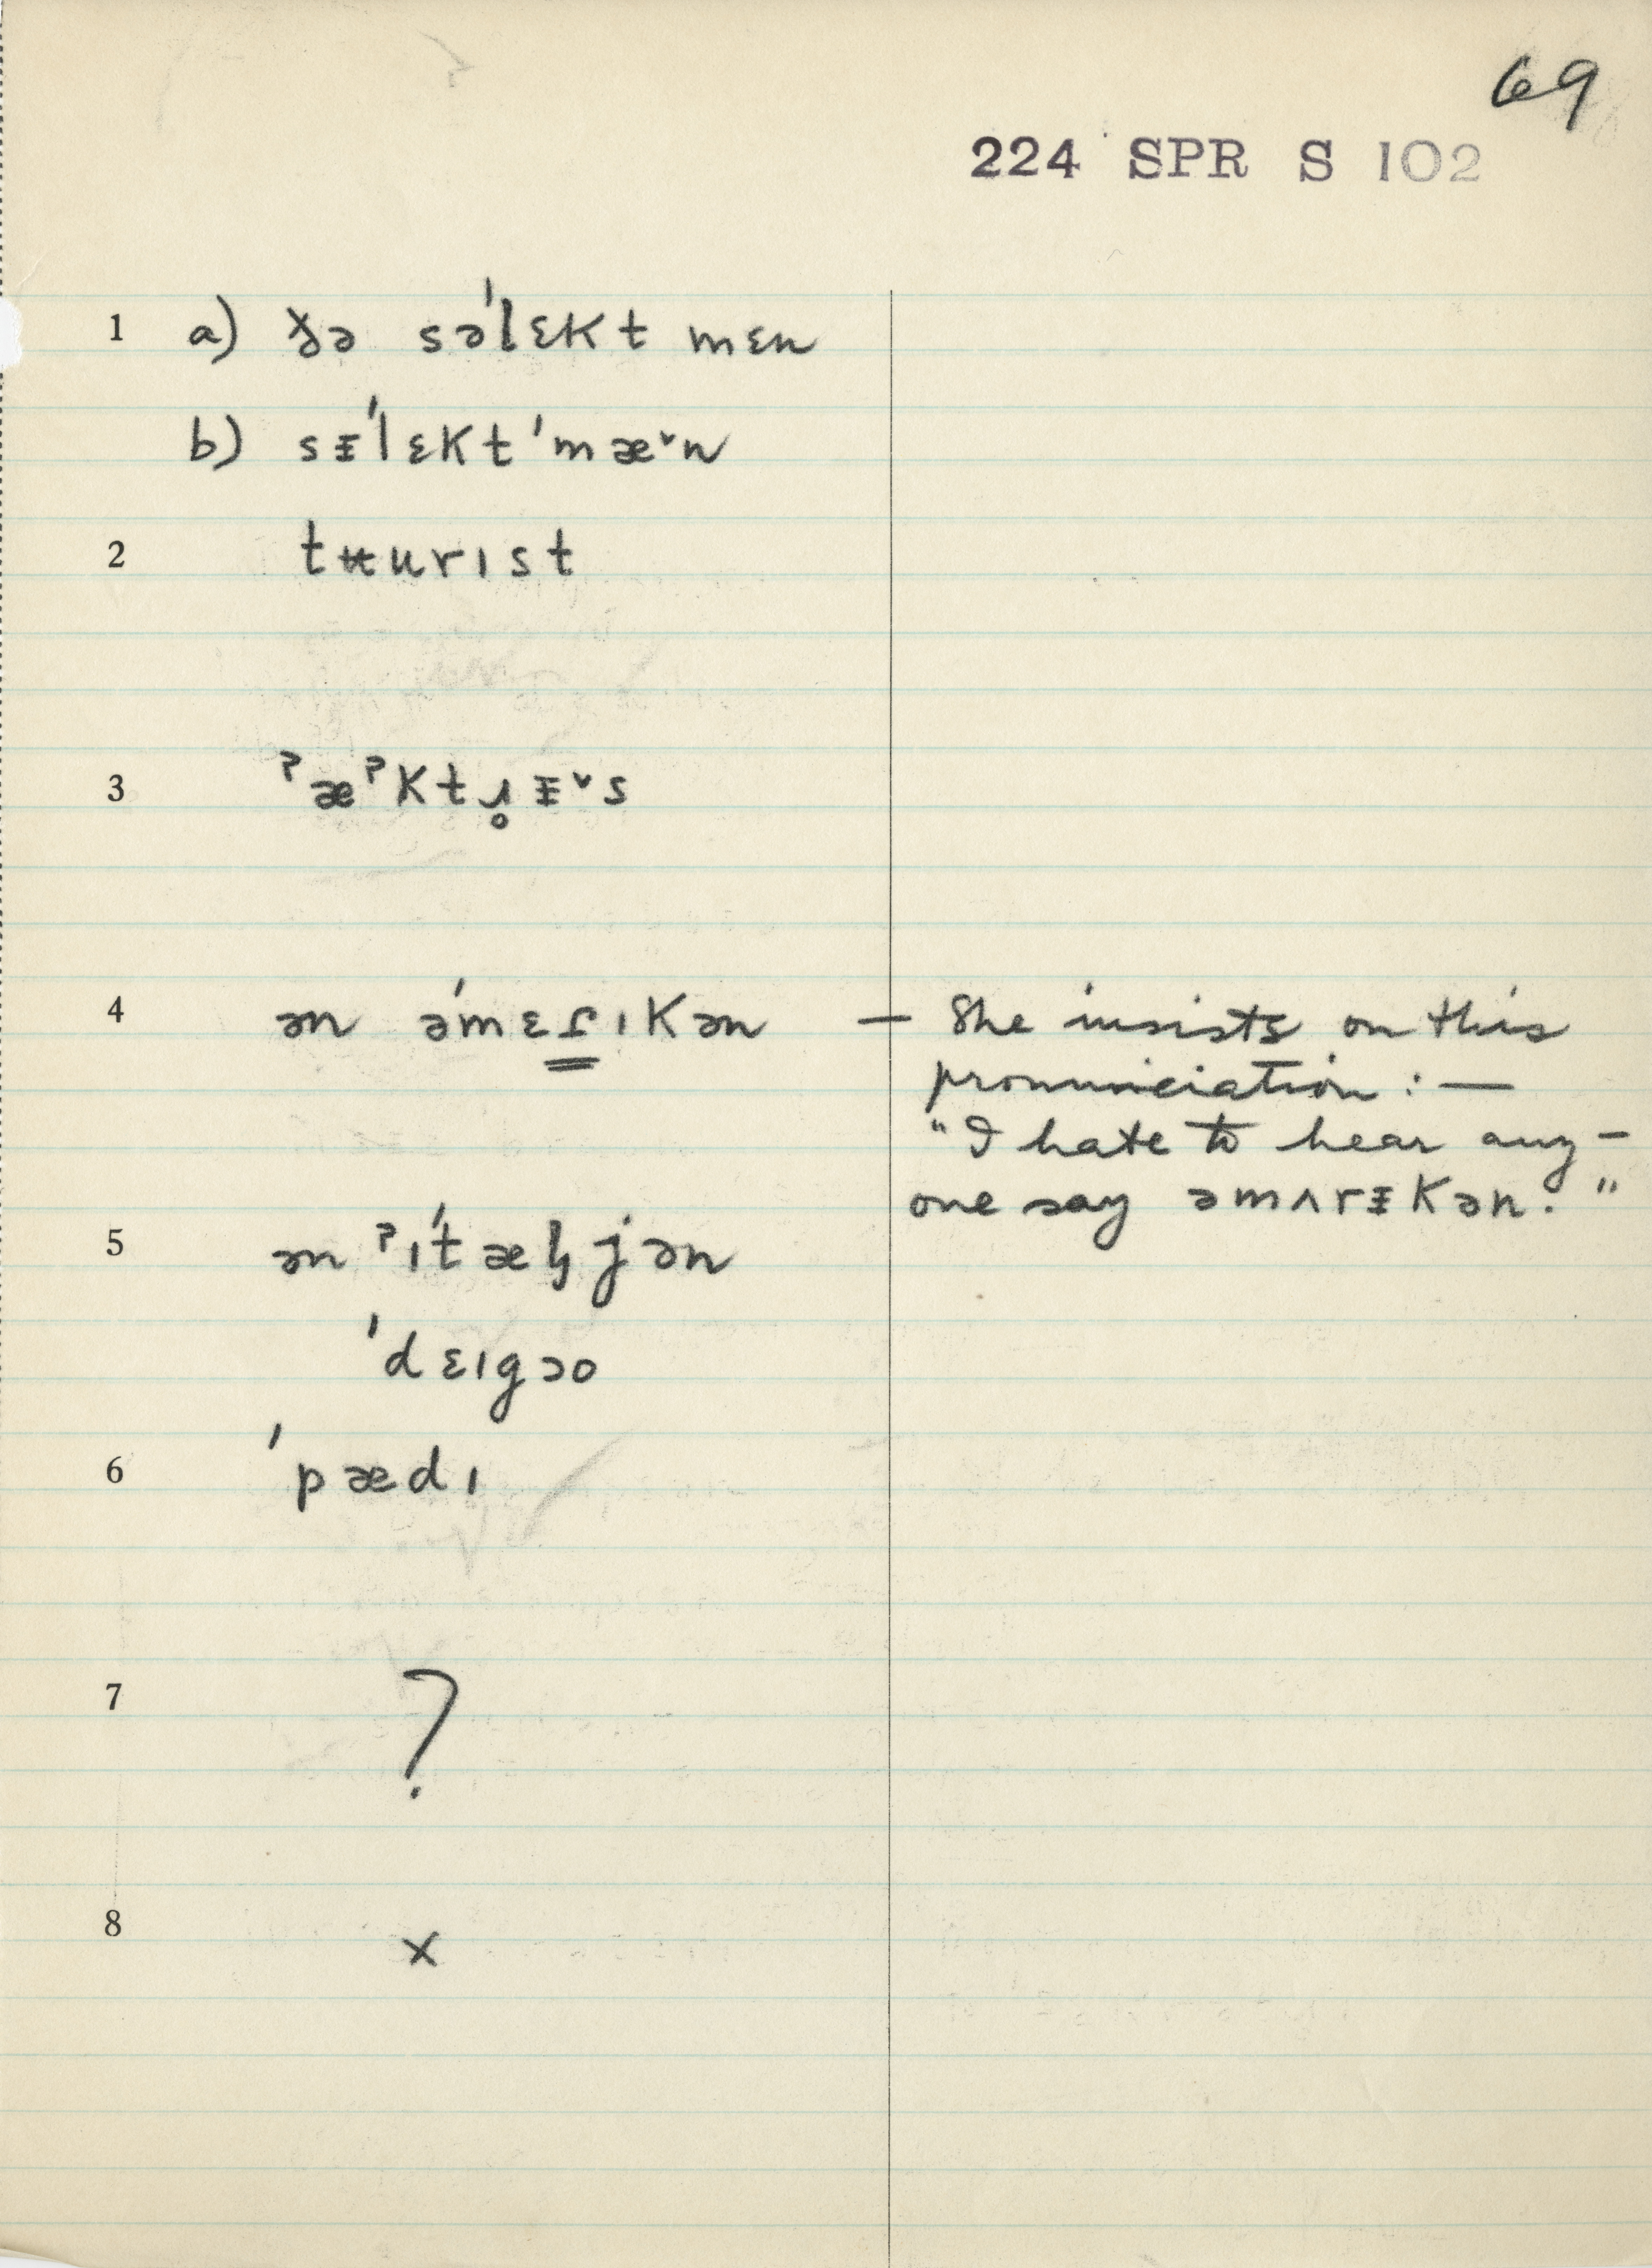 69
224 SPR S 102
1 a) ðə səˈlɛkt mɛn
b) sᵻˈlɛktˈmæ˅n
2 tʉurɪst
3 ˀæˀktɹ̥ᵻ˅s
4 ən əˈmɛɾɪkən — She insists on this
pronunciation : —
"I hate to hear any-
one say əmʌrᵻkən."
5 ən ˀɪˈtælj̡ən
ˈdɛɪgɔo
6 ˈpædɪ
7 ?
8 x